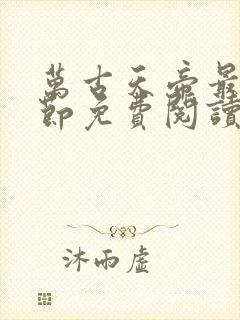 萬古天帝最
節免費閱讀
沐雨虛